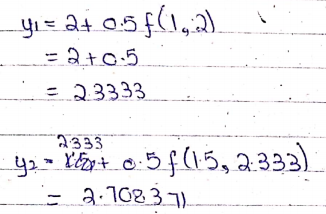 y₁ = 2 + 0.5 f(1, 2)
= 2 + 0.5
= 2.3333
2.333
y₂ = + 0.5 f(1.5, 2.333)
= 2.708371